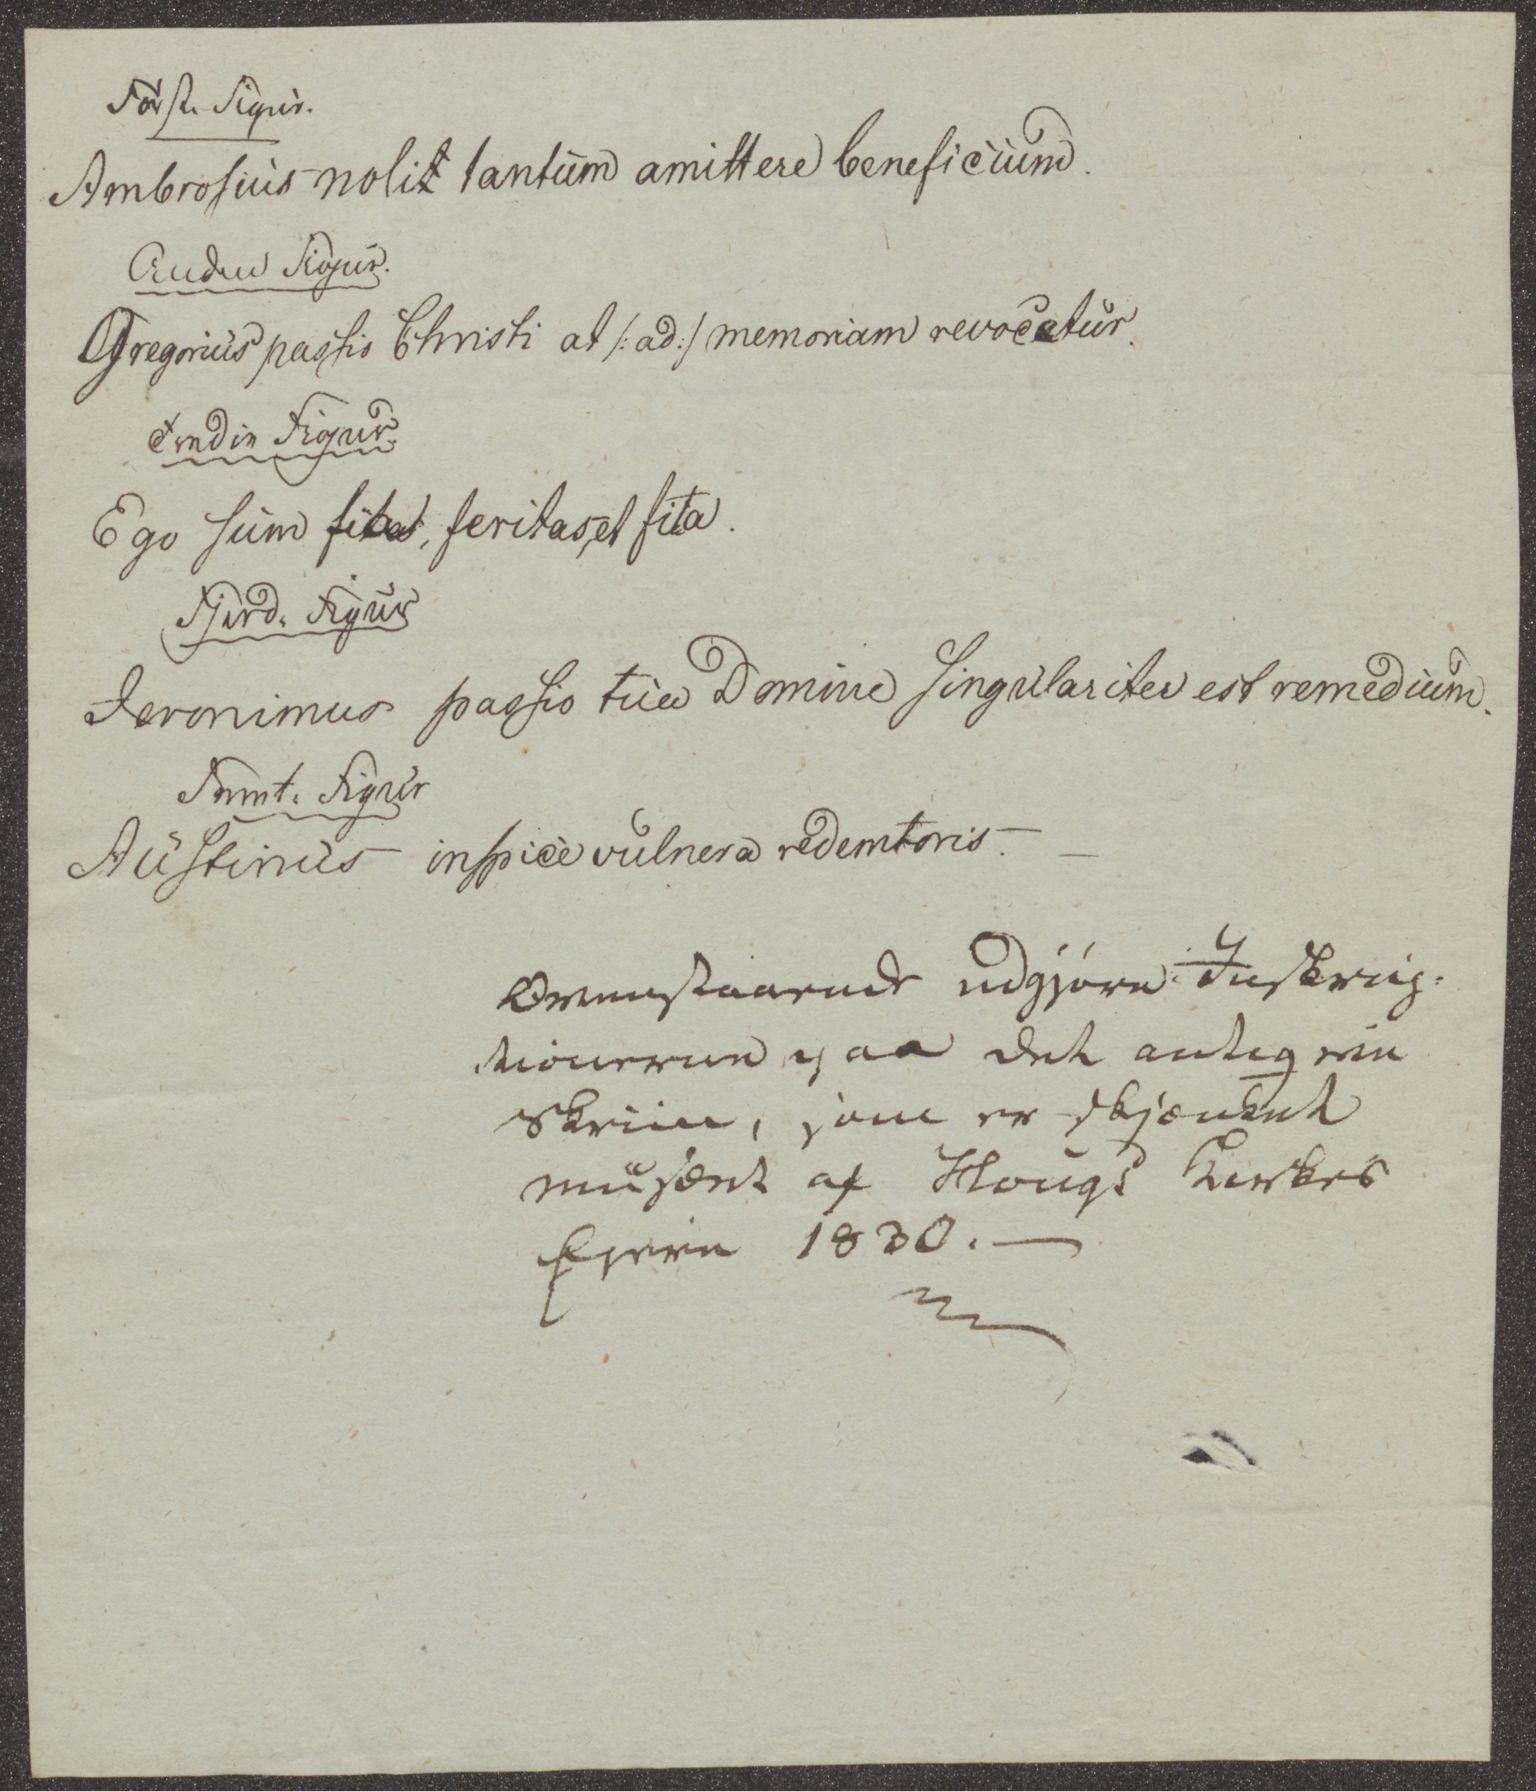 Først. Figur.
Ambrosius nolit tantum amittere beneficium.
Anden Figur.
Gregorius passio Christi at /: ad :/ memoriam revocatur.
Tredie Figur.
Ego sum fitas, feritas, et fita.
Fjerd. Figur
Jeronimus passio tua Domine singulariter est remedium.
Femt. Figur
Austinus inspice vulnera redemtoris. —
Ovenstaaende udgjøre Inskrip-
tionerne paa det antique
Skriin, som er skjænket
Musæet af Hougs Kirkes
Eiere 1830. —